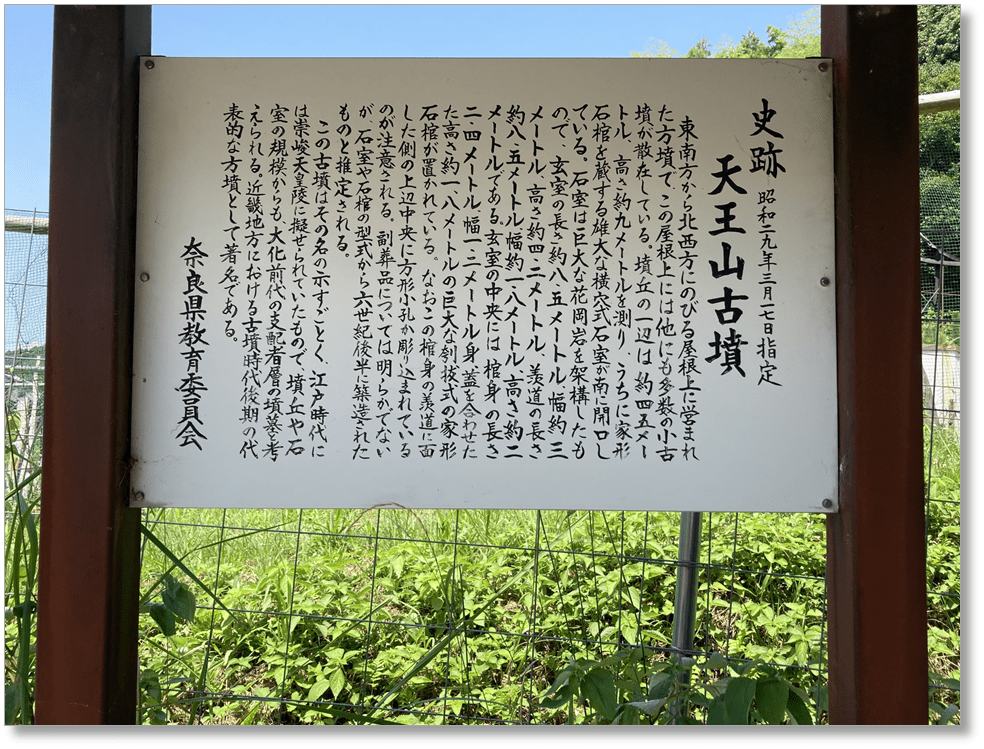 史跡 昭和二九年三月一七日指定
天王山古墳
東南方から北西方にのびる屋根上に営まれ
た方墳で、この屋根上には他にも多数の小古
墳が散在している。墳丘の一辺は、約四五メー
トル、高さ約九メートルを測り、うちに家形
石棺を蔵する雄大な横穴式石室が南に開口し
ている。石室は巨大な花岡岩を架構したも
ので、玄室の長さ約八・五メートル、幅約三
メートル、高さ約四・二メートル、羨道の長さ
約八・五メートル、幅約一・八メートル、高さ約二
メートルである。玄室の中央には、棺身の長さ
二・四メートル、幅一・二メートル、身、蓋を合わせ
た高さ約一・八メートルの巨大な刳抜式の家形
石棺が置かれている。なおこの棺身の羨道に面
した側の上辺中央に方形小孔が彫り込まれている
のが注意される。副葬品については明らかでない
が、石室や石棺の型式から六世紀後半に築造された
ものと推定される。
この古墳はその名の示すごとく、江戸時代に
は崇峻天皇陵に擬せられていたもので、墳丘や石
室の規模からも、大化前代の支配者層の墳墓と考
えられる。近畿地方における古墳時代後期の代
表的な方墳として著名である。
奈良県教育委員会